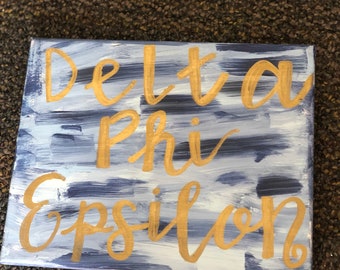 Delta
Phi
Epsilon